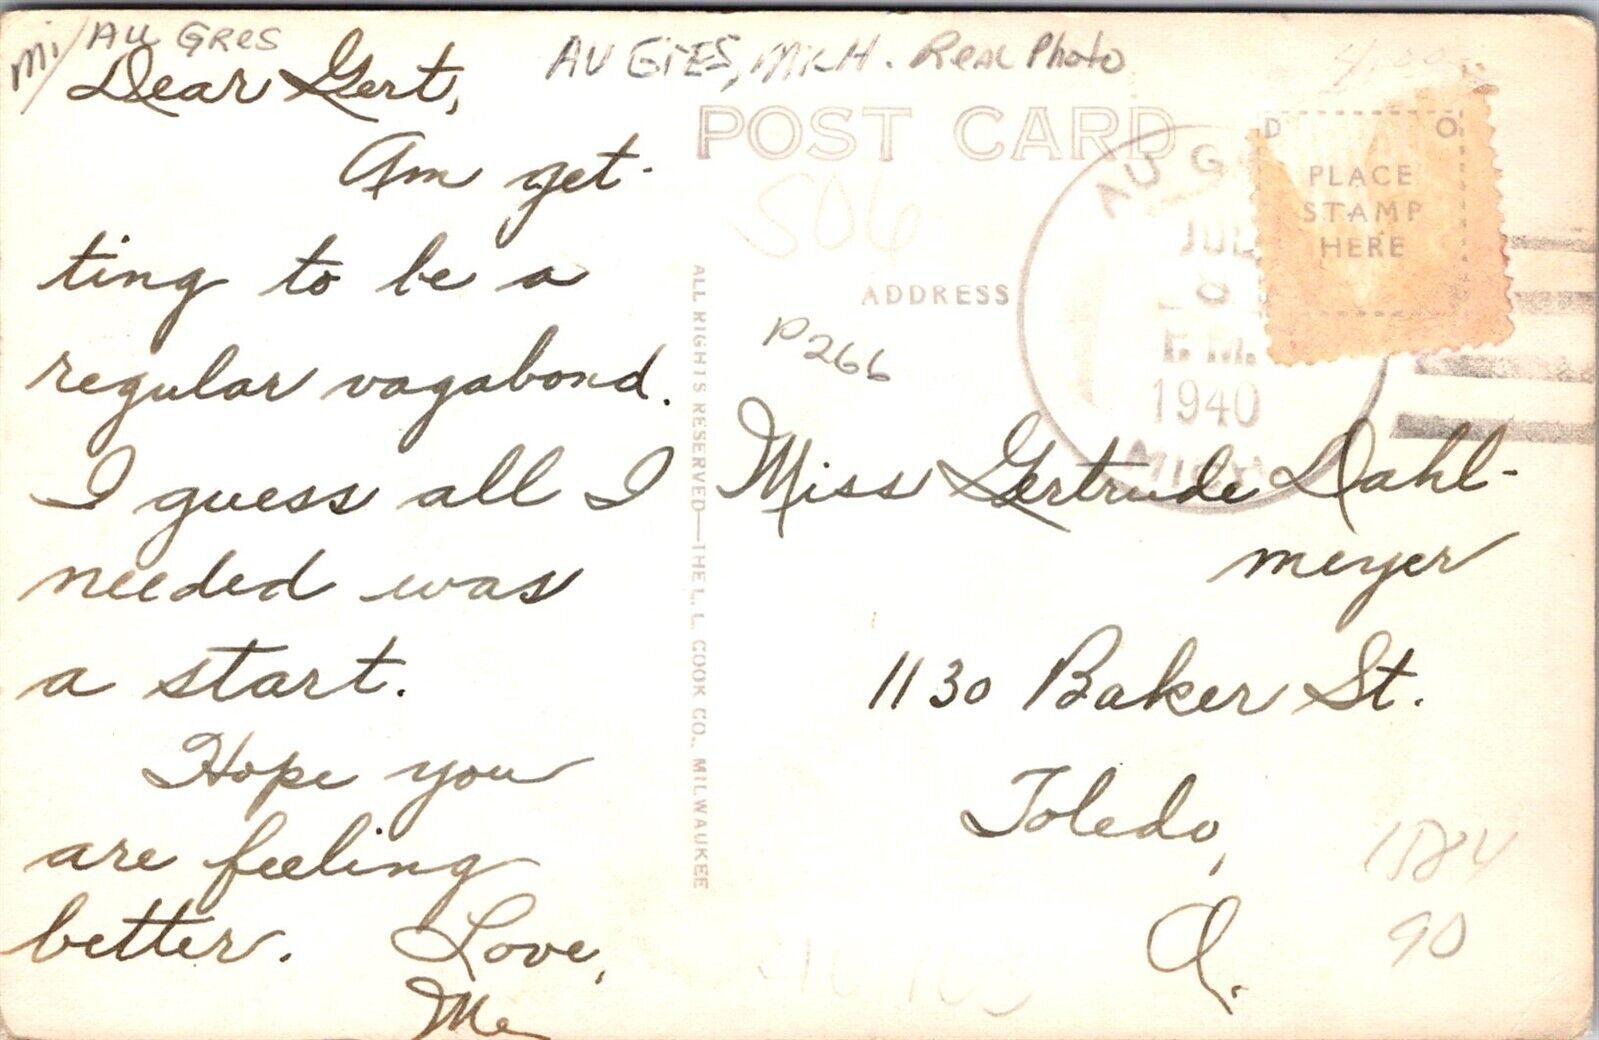 Mi/ AU GRES
AU GRES, MICH. Real Photo
Dear Gert,
Am get-
ting to be a
regular vagabond.
I guess all I
needed was
a start.
Hope you
are feeling
better. Love,
Me
POST CARD
506
ADDRESS
P266
ALL RIGHTS RESERVED—THE L. L. COOK CO., MILWAUKEE
AU G
JUL
P.M.
1940
MICH
D O
PLACE
STAMP
HERE
Miss Gertrude Dahl-
meyer
1130 Baker St.
Toledo,
O.
90